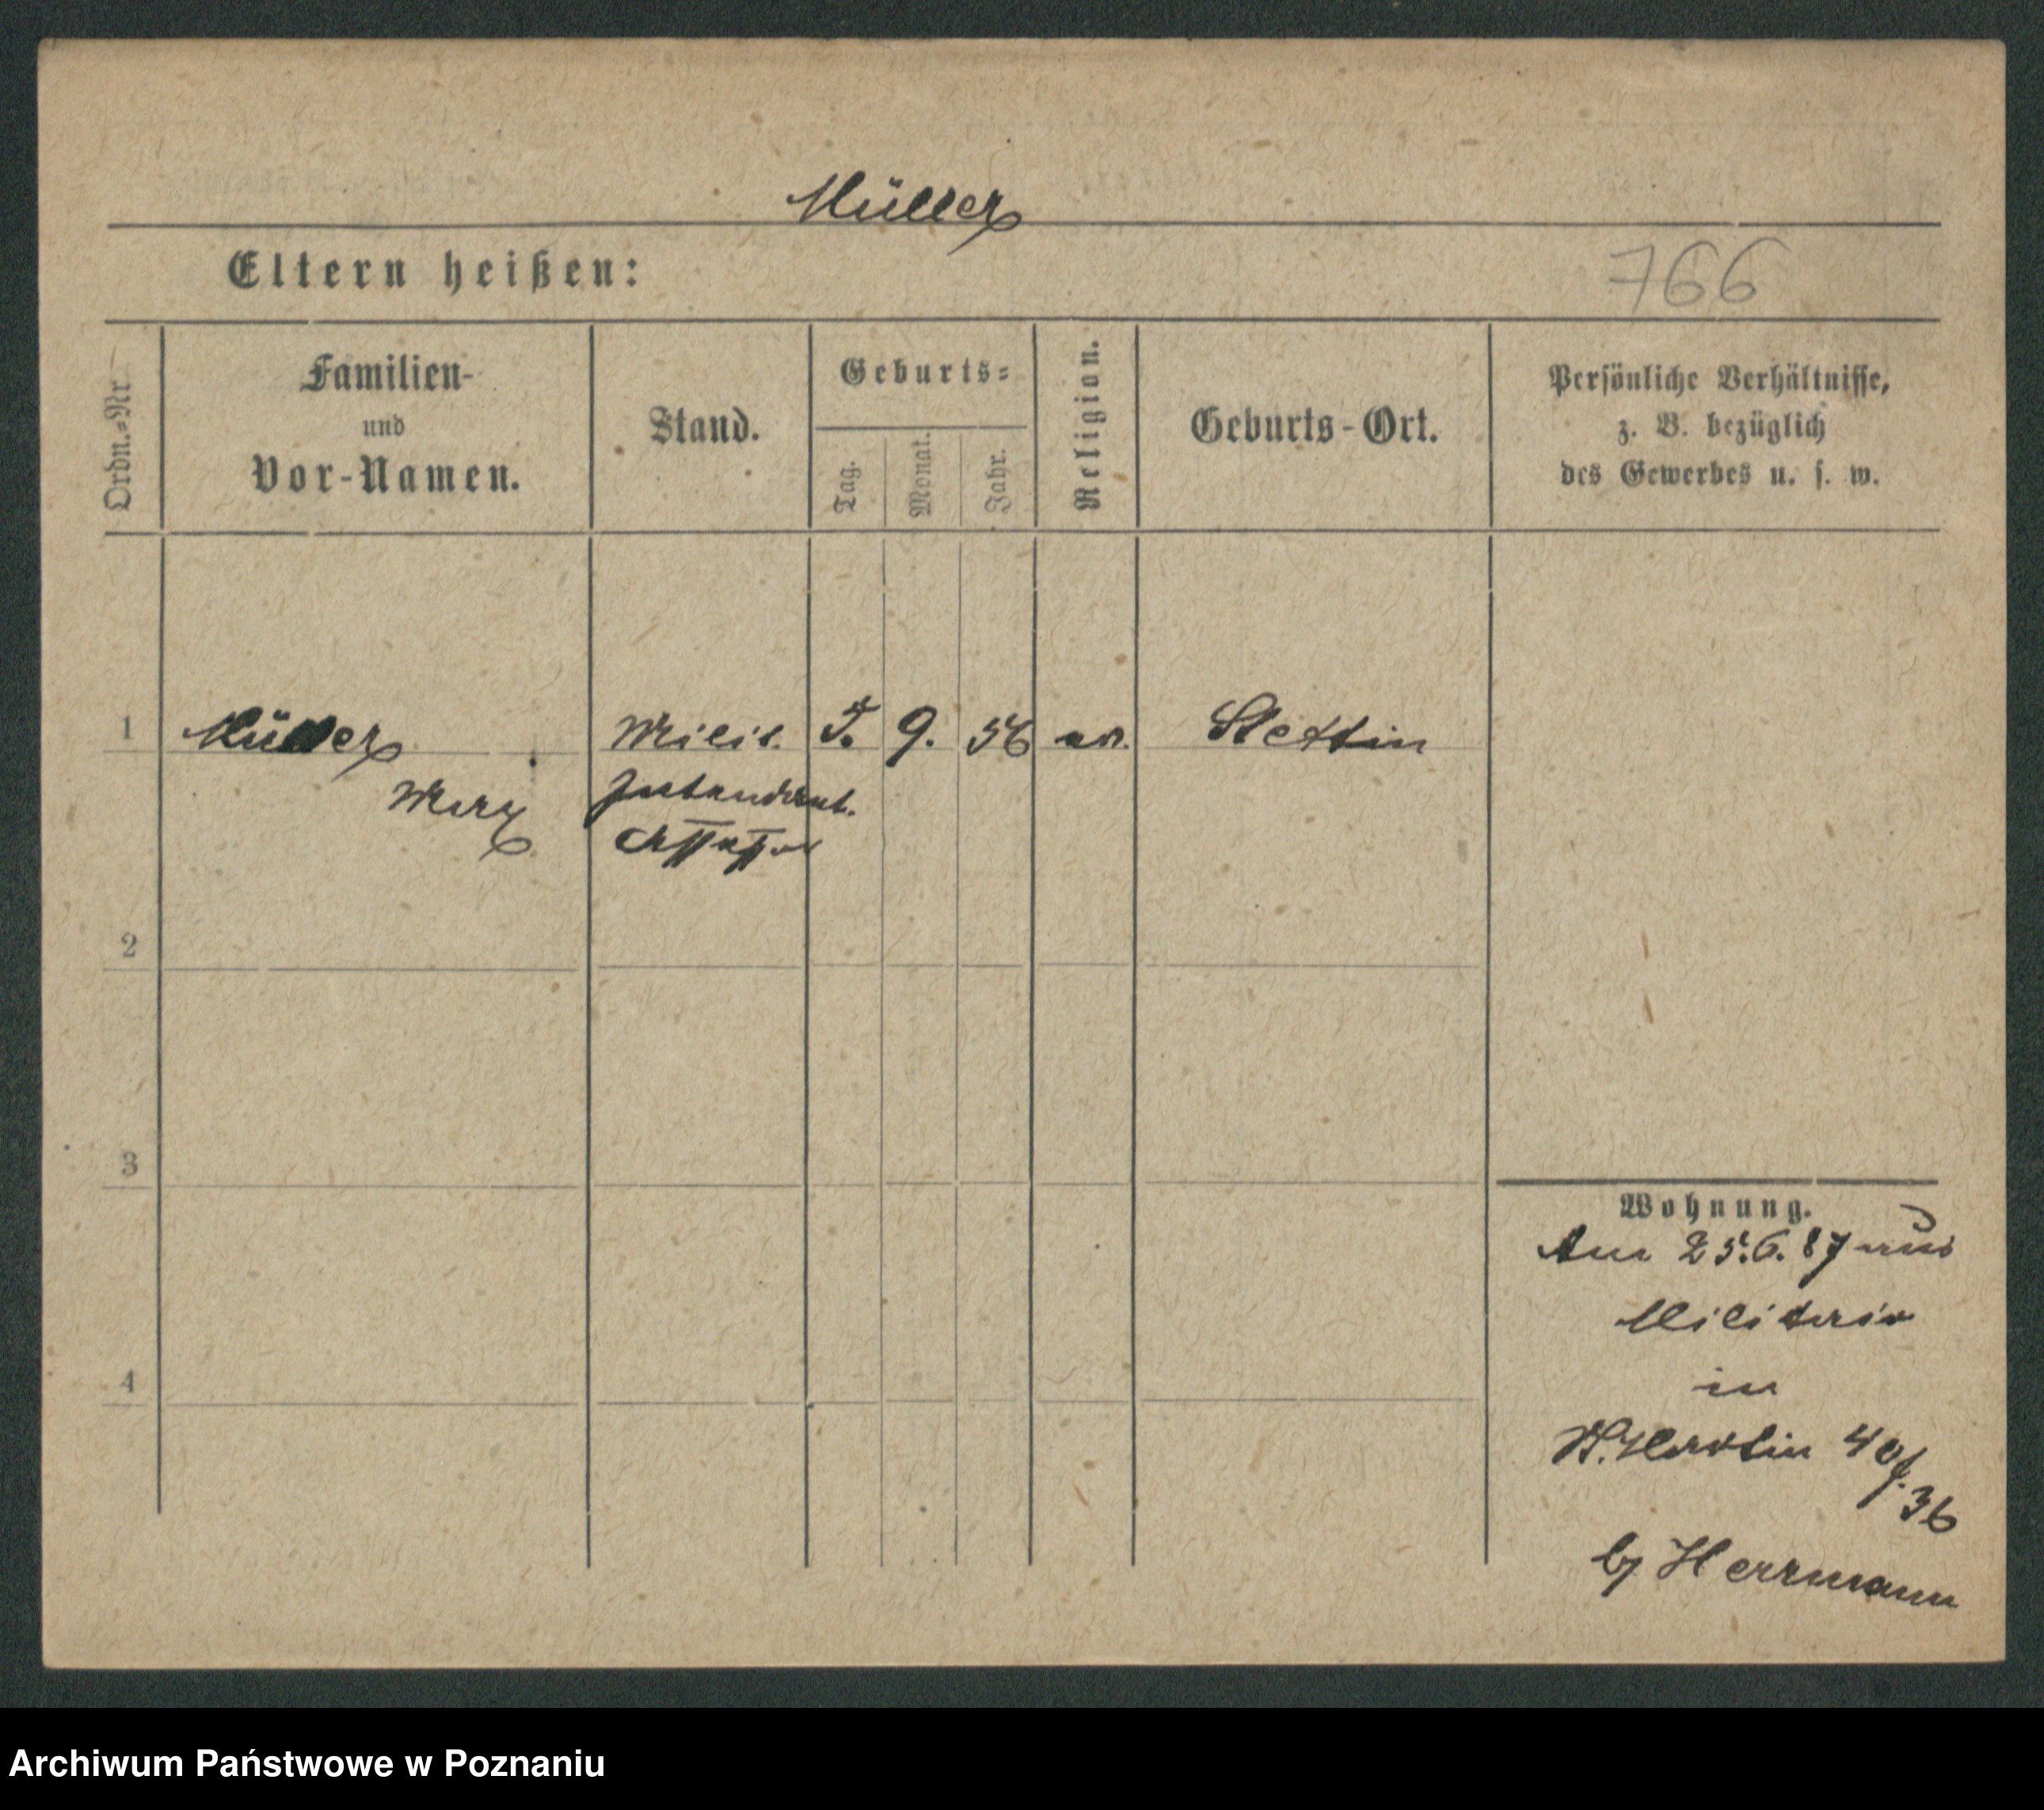 Müller
Eltern heißen:
766
Ordn.-Nr
Familien-
und
Vor-Namen.
Stand.
Geburts-
Tag.
Monat.
Jahr.
Religion.
Geburts-Ort.
Persönliche Verhältnisse,
z. B. bezüglich
des Gewerbes u. s. w.
1 Müller Milit. 5. 9. 56 ev. Stettin
Max Intendant.
Assessor
2
3
4
Wohnung.
Am 25.6.87 aus
in
40/36
b/ Herrmann
Archiwum Państwowe w Poznaniu